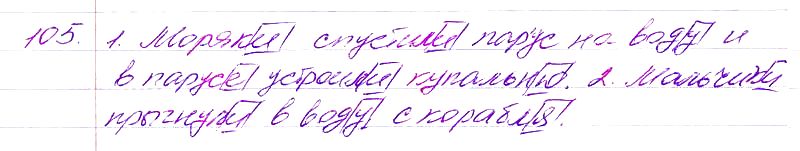 105. 1. Моряки спустили парус на воду и
в парусе устроили купальню. 2. Мальчики
прыгнули в воду с корабля.